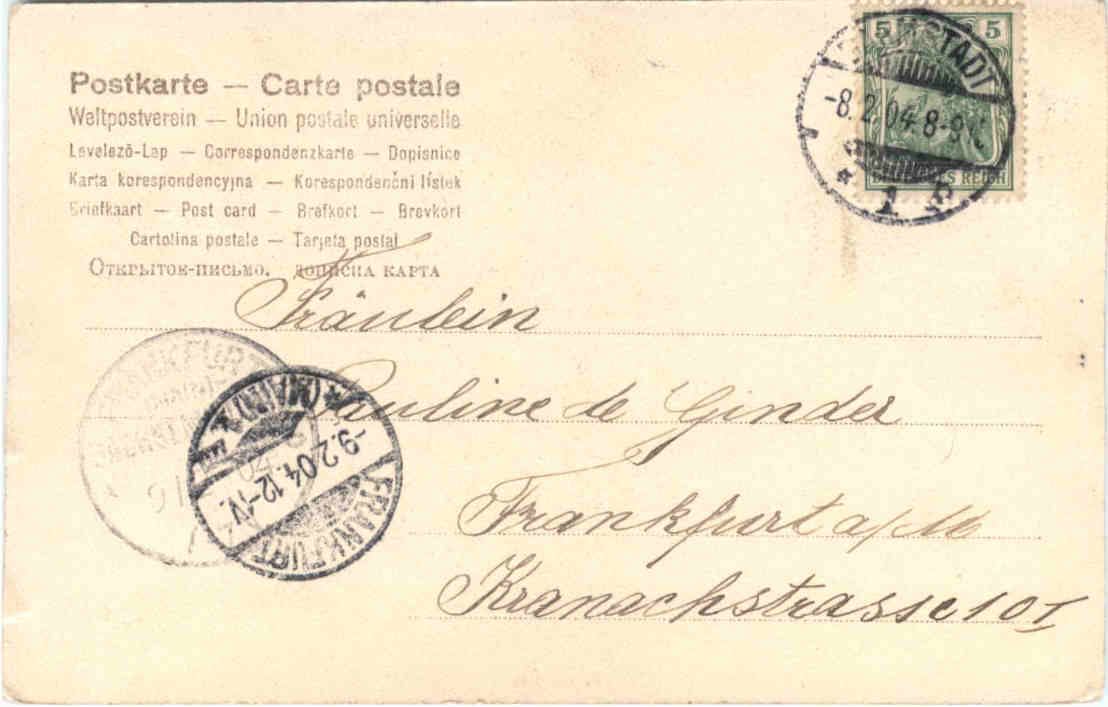 Postkarte — Carte postale
Weltpostverein — Union postale universelle
Levelező-Lap — Correspondenzkarte — Dopisnice
Karta korespondencyjna — Korespondenční lístek
Briefkaart — Post card — Brefkort — Brevkort
Cartolina postale — Tarjeta postal
Открытое-письмо. дописна карта
5 5
DEUTSCHES REICH
-8.2.04.8-9N.
* 1 P
Fräulein
Pauline de Ginder
Frankfurt a/M
Kranachstrasse 10 I
FRANKFURT
FRANKFURT
* (MAIN) 1
-9.2.04.12-1V.